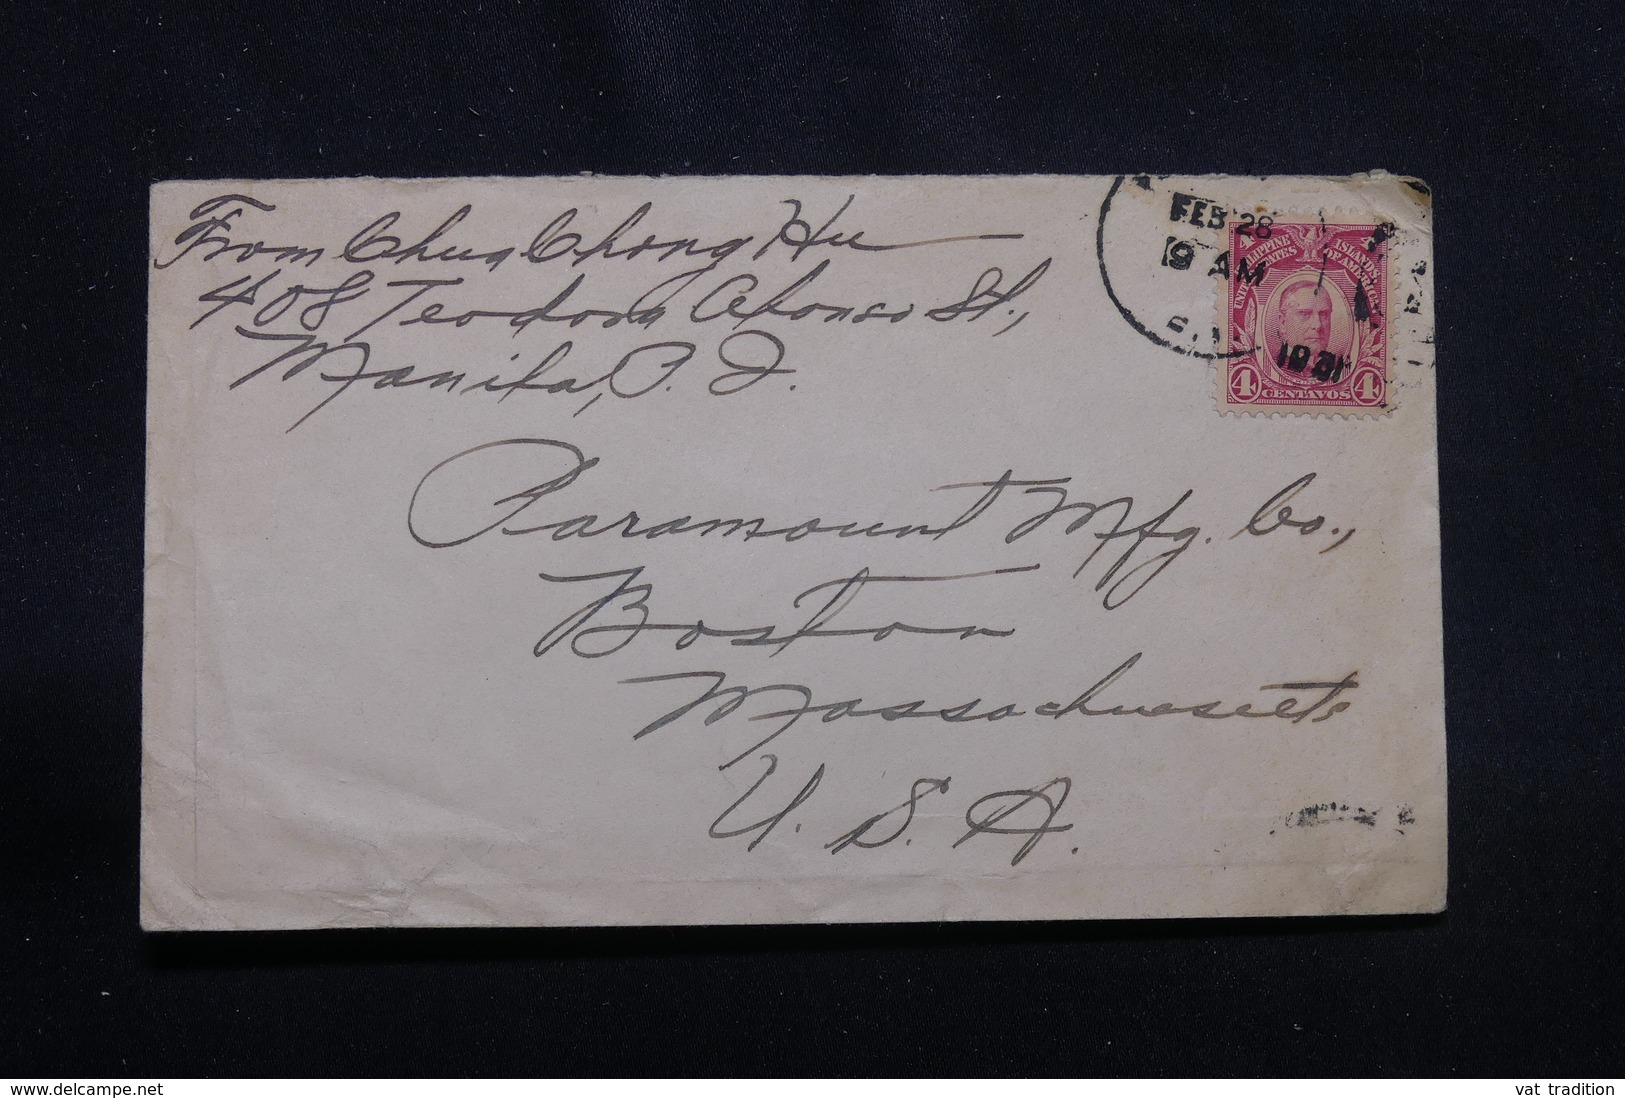 From Chua Chong Hu
408 Teodora Alonso St.,
Manila, P. I.
FEB 28
9 AM
P.I.
1931
PHILIPPINE ISLANDS
UNITED STATES OF AMERICA
4 CENTAVOS 4
Paramount Mfg. Co.,
Boston
Massachusetts
U. S. A.
www.delcampe.net
vat tradition